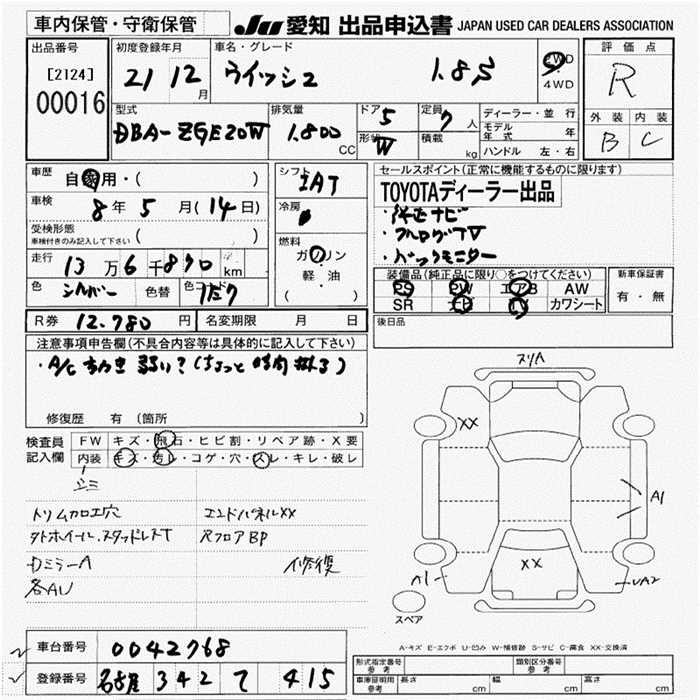 車内保管・守衛保管
JU 愛知 出品申込書 JAPAN USED CAR DEALERS ASSOCIATION
出品番号
[2124]
00016
初度登録年月
21 12 月
車名・グレード
ウイッシュ 1.8S
2WD
・
4WD
評価点
R
外装 内装
B C
型式
DBA-ZGE20W
排気量
1.800 CC
ドア 5
形状 W
定員 7 人
積載 kg
ディーラー・並行
モデル年式 年
ハンドル 左・右
車歴
自家用・( )
車検
8年 5月(14日)
受検形態
車検付きのみ記入して下さい ( )
走行
13万 6千870 km
色 シルバー 色替 色コード 1F7
シフト
IAT
冷房
燃料
ガソリン
・
軽・油
( )
セールスポイント(正常に機能するものに限ります)
TOYOTAディーラー出品
・純正ナビ
・フルセグTV
・バックモニター
装備品(純正品に限り○をつけてください)
PS PW エアB AW
SR ナビ TV カワシート
新車保証書
有・無
後日品
R券 12.780 円 名変期限 月 日
注意事項申告欄(不具合内容等は具体的に記入して下さい)
・A/C きき 弱い?(ちょっと時間掛る)
修復歴 有(箇所
検査員
記入欄
FW キズ・飛石・ヒビ割・リペア跡・X要
内装 キズ・汚レ・コゲ・穴・スレ・キレ・破レ
シミ
トリムカロエ穴 エンドパネルXX
タトホイール.スタッドレスT RフロアBP
DミラーA 修復
各AU
スリA
XX
A1
XX
A1
UA2
スペア
A-キズ E-エクボ U-凹み W-補修跡 S-サビ C-腐食 XX-交換済
車台番号 0042768
登録番号 名古屋 342 て 415
形式指定番号
参考
類別区分番号
参考
車体証明用
参考
長さ cm 幅 cm 高さ cm